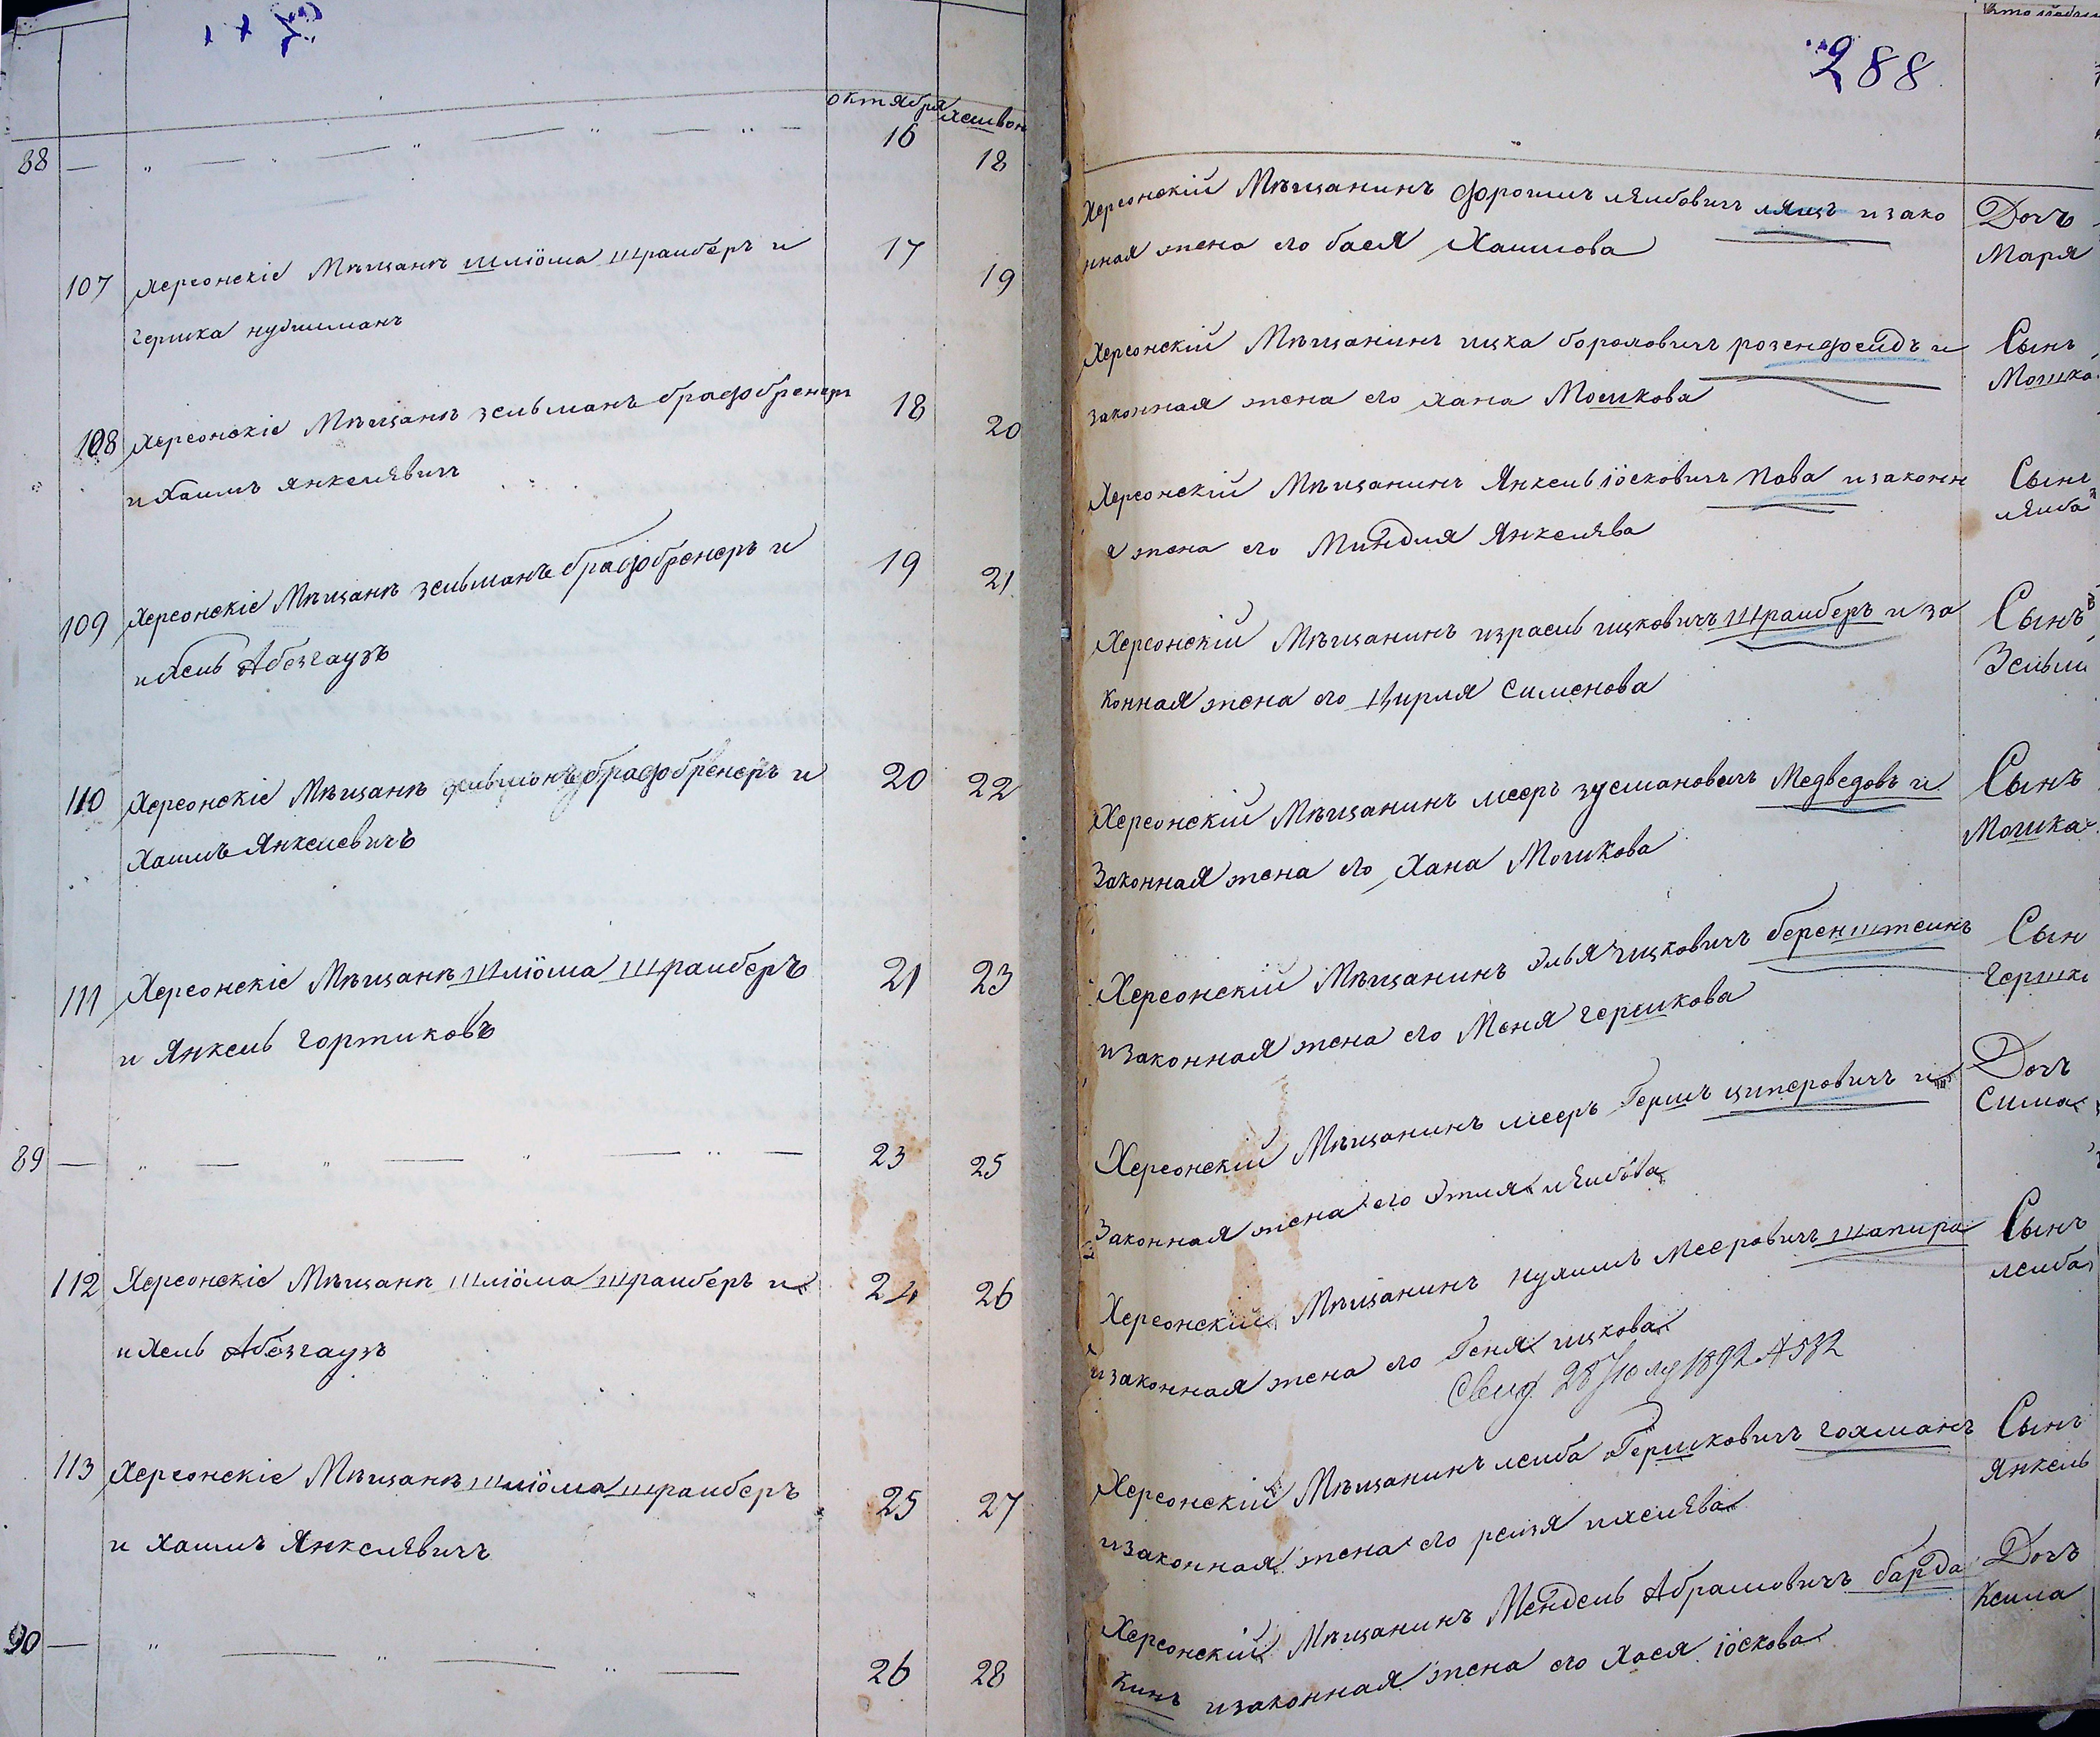 октября хешвон
88 — „ — „ — „ — „ — 16 18
107 Херсонскіе Мѣщанѣ шлiома штраимберъ и 17 19
гершка нудииманъ
108 Херсонскіе Мѣщанѣ зельманъ брадобренеръ 18 20
и Хаимъ янкелѣвичъ
109 Херсонскіе Мѣщанѣ зельманъ брадобренеръ и 19 21
ихель Абезгаузъ
110 Херсонскіе Мѣщанѣ зельманъ брадобренеръ и 20 22
Хаимъ Янкелевичъ
111 Херсонскіе Мѣщанѣ шліома штраимберъ 21 23
и Янкель гортиковъ
89 — „ — „ — „ — „ — 23 25
112 Херсонскіе Мѣщанѣ шліома штраимберъ и 24 26
ихель Абезгаузъ
113 Херсонскіе Мѣщанѣ шліома штраимберъ 25 27
и Хаимъ Янкелѣвичъ
90 — „ — „ — „ — 26 28
288
Херсонскій Мѣщанинъ фроимъ лѣибовичъ ляцъ изако
нная жена его бася Хаимова
Дочъ
Маря
Херсонскій Мѣщанинъ ицка бороховичъ розенфелдъ и
законная жена его хана Мошкова
Сынъ
Мошка
Херсонскій Мѣщанинъ Янкель іосковичъ пава изаконн
я жена его Миндля Янкелѣва
Сынъ
лѣиба
Херсонскій Мѣщанинъ израель ицковичъ штраимберъ и за
конная жена его Цирля Сименова
Сынъ
Зельм
Херсонскій Мѣщанинъ мееръ зусмановичъ Медведовъ и
Законная жена его Хана Мошкова
Сынъ
Мошка
Херсонскій Мѣщанинъ Элья ицковичъ беренштеинъ
изаконная жена его Меня гершкова
Сын
гершк
Херсонскій Мѣщанинъ мееръ Гершъ циперовичъ и
Законная жена его Этля лѣибова
Дочъ
Сима
Херсонскій Мѣщанинъ нухимъ Мееровичъ шапира
изаконная жена его Геня ицкова
Свид 28 Іюля 1892 № 582
Сынъ
леиба
Херсонскій Мѣщанинъ леиба Гершковичъ гохманъ
изаконная жена его реизя ихелѣва
Сынъ
янкель
Херсонскій Мѣщанинъ Мендель Абрамовичъ барда
кинъ изаконная жена его Хася іоскова
Дочъ
Кеила